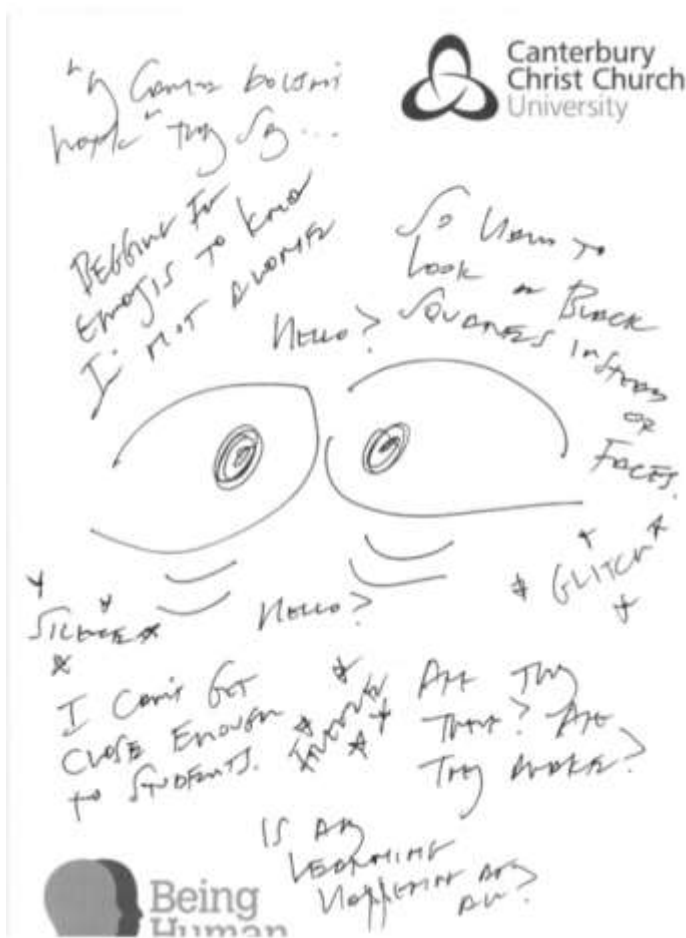 Canterbury
Christ Church
University
they say...
BEGGING FOR
EMOJIS TO KNOW
I'M NOT ALONE
SO HARD TO
LOOK at BLACK
SQUARES INSTEAD
OF
FACES.
HELLO?
GLITCH
SILENCE
HELLO?
I CAN'T GET
CLOSE ENOUGH
TO STUDENTS.
ARE THEY
THERE? ARE
THEY AWAKE?
IS ANY
LEARNING
HAPPENING AT
ALL?
Being
Human